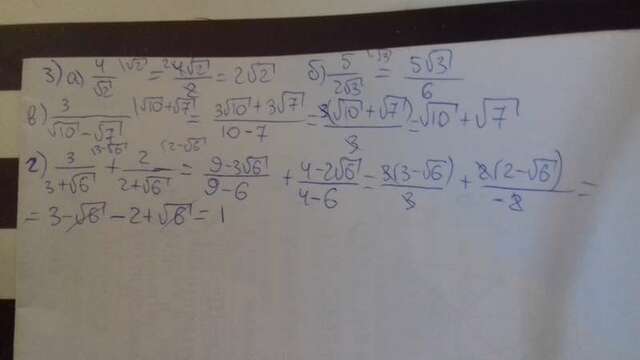 3) а) 4/√2 |√2 = 4√2/2 = 2√2 б) 5/2√3 |√3 = 5√3/6
в) 3/√10-√7 |√10+√7 = 3√10+3√7/10-7 = 3(√10+√7)/3 = √10+√7
г) 3/3+√6 |3-√6 + 2/2+√6 |2-√6 = 9-3√6/9-6 + 4-2√6/4-6 = 3(3-√6)/3 + 2(2-√6)/-2 =
= 3-√6-2+√6 = 1